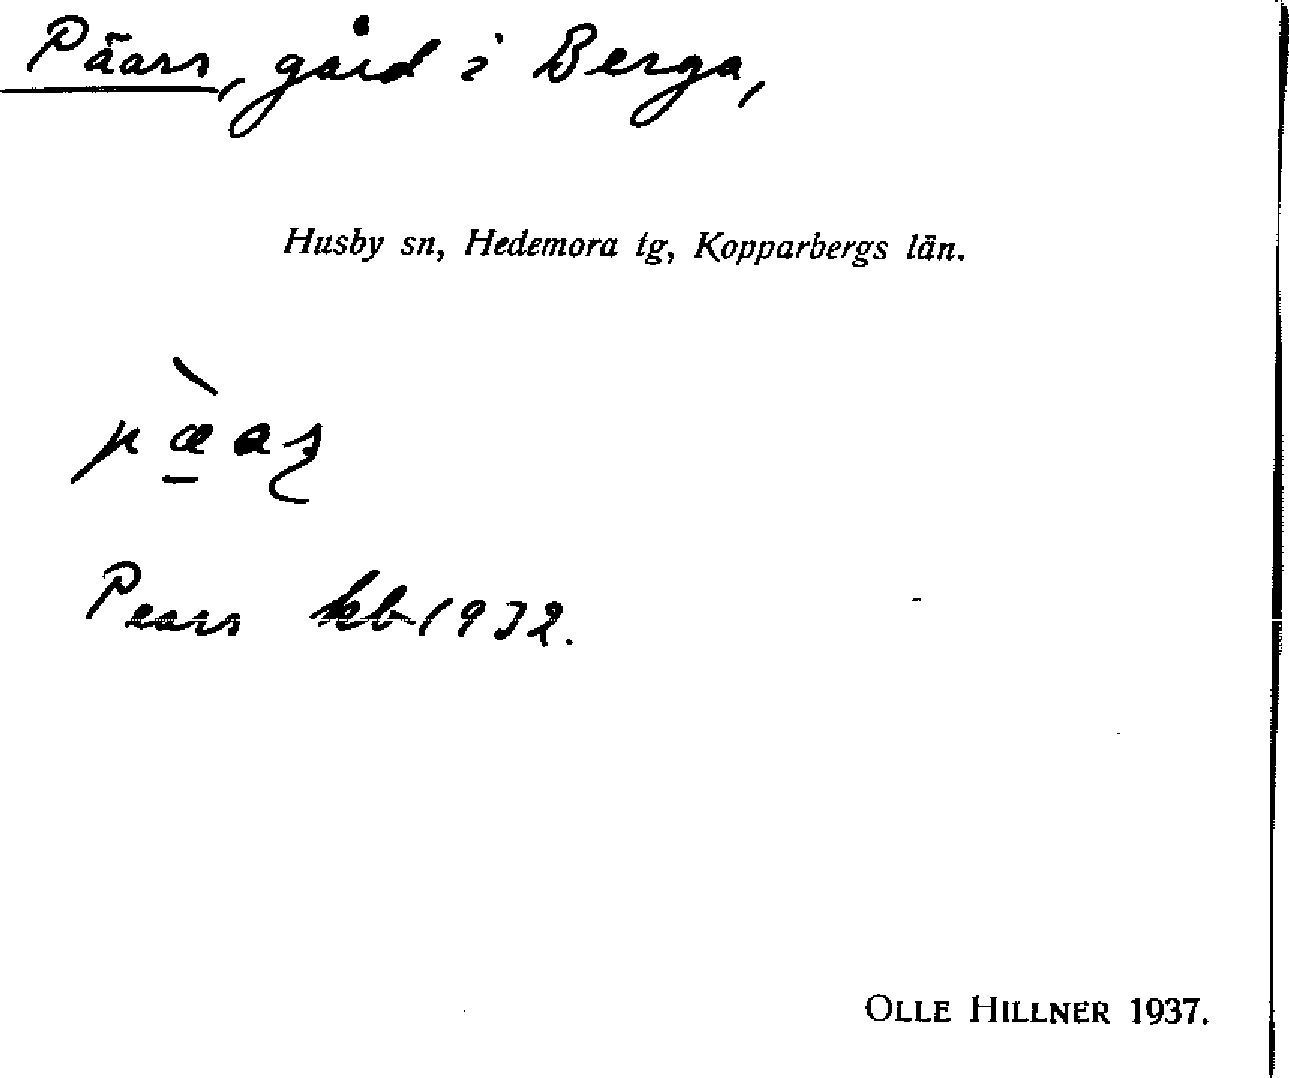 Päars, gård i Berga,
Husby sn, Hedemora tg, Kopparbergs län.
pæ̠̀aʂ
Pears kb 1932.
OLLE HILLNER 1937.